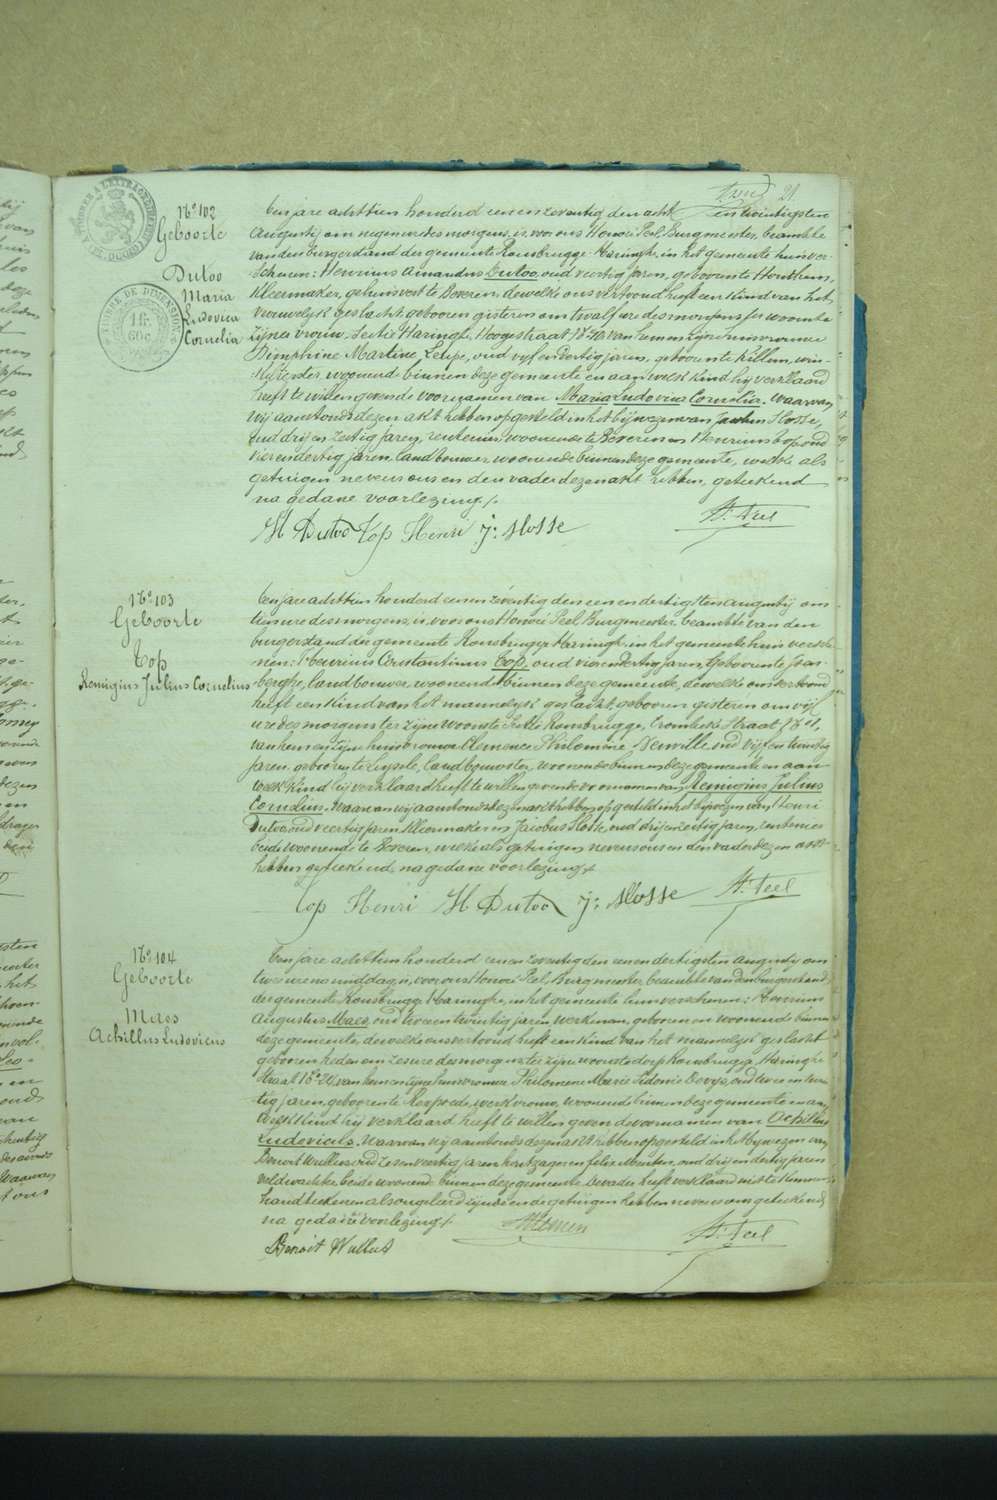 21
N° 102
Geboorte
Dutoo
Maria
Ludovica
Cornelia
TIMBRE DE DIMENSION
Een jare achttien honderd eenen zeventig den acht en twintigsten
Augusti, om negen ure des morgens, is voor ons Honoré Peel, Burgmeester, beambte
van den burgerstand der gemeente Rousbrugge-Haringhe, in het gemeente huis ver-
schenen: Henricus Amandus Dutoo, oud veertig jaren, geboren te Houthem,
kleermaker, gehuisvest te Beveren, dewelke ons vertoond heeft een kind van het
vrouwelyk geslacht, gebooren gisteren om twaalf ure des morgens ter woonste
zyner vrouw, Sectie Haringhe, Hoogestraat N° 40, van hem en zyne huisvrouwe
Dimphine Martine Leupe, oud vyf en dertig jaren, geboren te Killem, win-
kelierster woonend binnen deze gemeente en aan welk kind hy verklaard
heeft te willen geven de voornamen van Maria Ludovica Cornelia. Waarvan
wy aanstonds dezen akt hebben opgesteld in het bywezen van Jacobus Slosse,
oud dry en zestig jaren, rentenier, woonende te Beveren en Henricus Top, oud
vier en dertig jaren, landbouwer, woonende binnen deze gemeente, welke als
getuigen nevens ons en den vader dezen akt hebben geteekend
na gedane voorlezing /.
H Dutoo Top Henri J: Slosse H. Peel
N° 103
Geboorte
Top
Remigius Julius Cornelius
Een jare achttien honderd eenen zeventig den een en dertigsten augusty om
tien ure des morgens, is voor ons Honoré Peel Burgmeester beambte van den
burgerstand der gemeente Rousbrugge Haringhe, in het gemeente huis versche-
nen: Henricus Constantinus Top, oud vier en dertig jaren, geboren te
berghe, landbouwer, woonende binnen deze gemeente, dewelke ons vertoond
heeft een kind van het mannelyk geslacht, gebooren gisteren om vyf
ure des morgens ter zyne woonste Sectie Rousbrugge, straat N°
van hem en zyne huisvrouwe Clemence Philomène Deuville oud vyf en twintig
jaren, geboren te Leysele, landbouwster, woonende binnen deze gemeente en aan
welk kind hy verklaard heeft te willen geven de voornamen van Remigius Julius
Cornelius. Waarvan wy aanstonds dezen akt hebben opgesteld in het bywezen van Henri
Dutoo, oud veertig jaren, kleermaker en Jacobus Slosse, oud dry en zestig jaren, rentenier
beide woonende te Beveren, welke als getuigen nevens ons en den vader dezen akt
hebben geteekend, na gedane voorlezing /.
Top Henri H Dutoo J: Slosse H. Peel
N° 104
Geboorte
Maes
Achillus Ludovicus
Een jare achttien honderd eenen zeventig den een en dertigsten augusty om
twee ure namiddag, is voor ons Honoré Peel, Burgmeester, beambte van den burgerstand
der gemeente Rousbrugge Haringhe, in het gemeente huis verschenen: Henricus
Augustus Maes, oud twee en twintig jaren, werkman, gebooren en woonende binnen
deze gemeente, dewelke ons vertoond heeft een kind van het mannelyk geslacht
gebooren heden om zes ure des morgens, te zyne woonste dorp Rousbrugge, Haringhe
straat N° 20, van hem en zyne huisvrouwe Philomene Marie Sidonie Devys, oud twee en twin-
tig jaren, geboren te Rexpoede, werkvrouw, woonende binnen deze gemeente en aan
welk kind hy verklaard heeft te willen geven de voornamen van Achillus
Ludovicus. Waarvan wy aanstonds dezen akt hebben opgesteld in het bywezen van
Benoit Wullus oud zes en veertig jaren houtzager en Felix oud dry en dertig jaren
veldwachter beide woonende binnen deze gemeente. De vader heeft verklaard niet te kunnen
handteekenen als ongeleerd zynde en de getuigen hebben nevens ons geteekend,
na gedane voorlezing /.
Benoit Wullus H. Peel